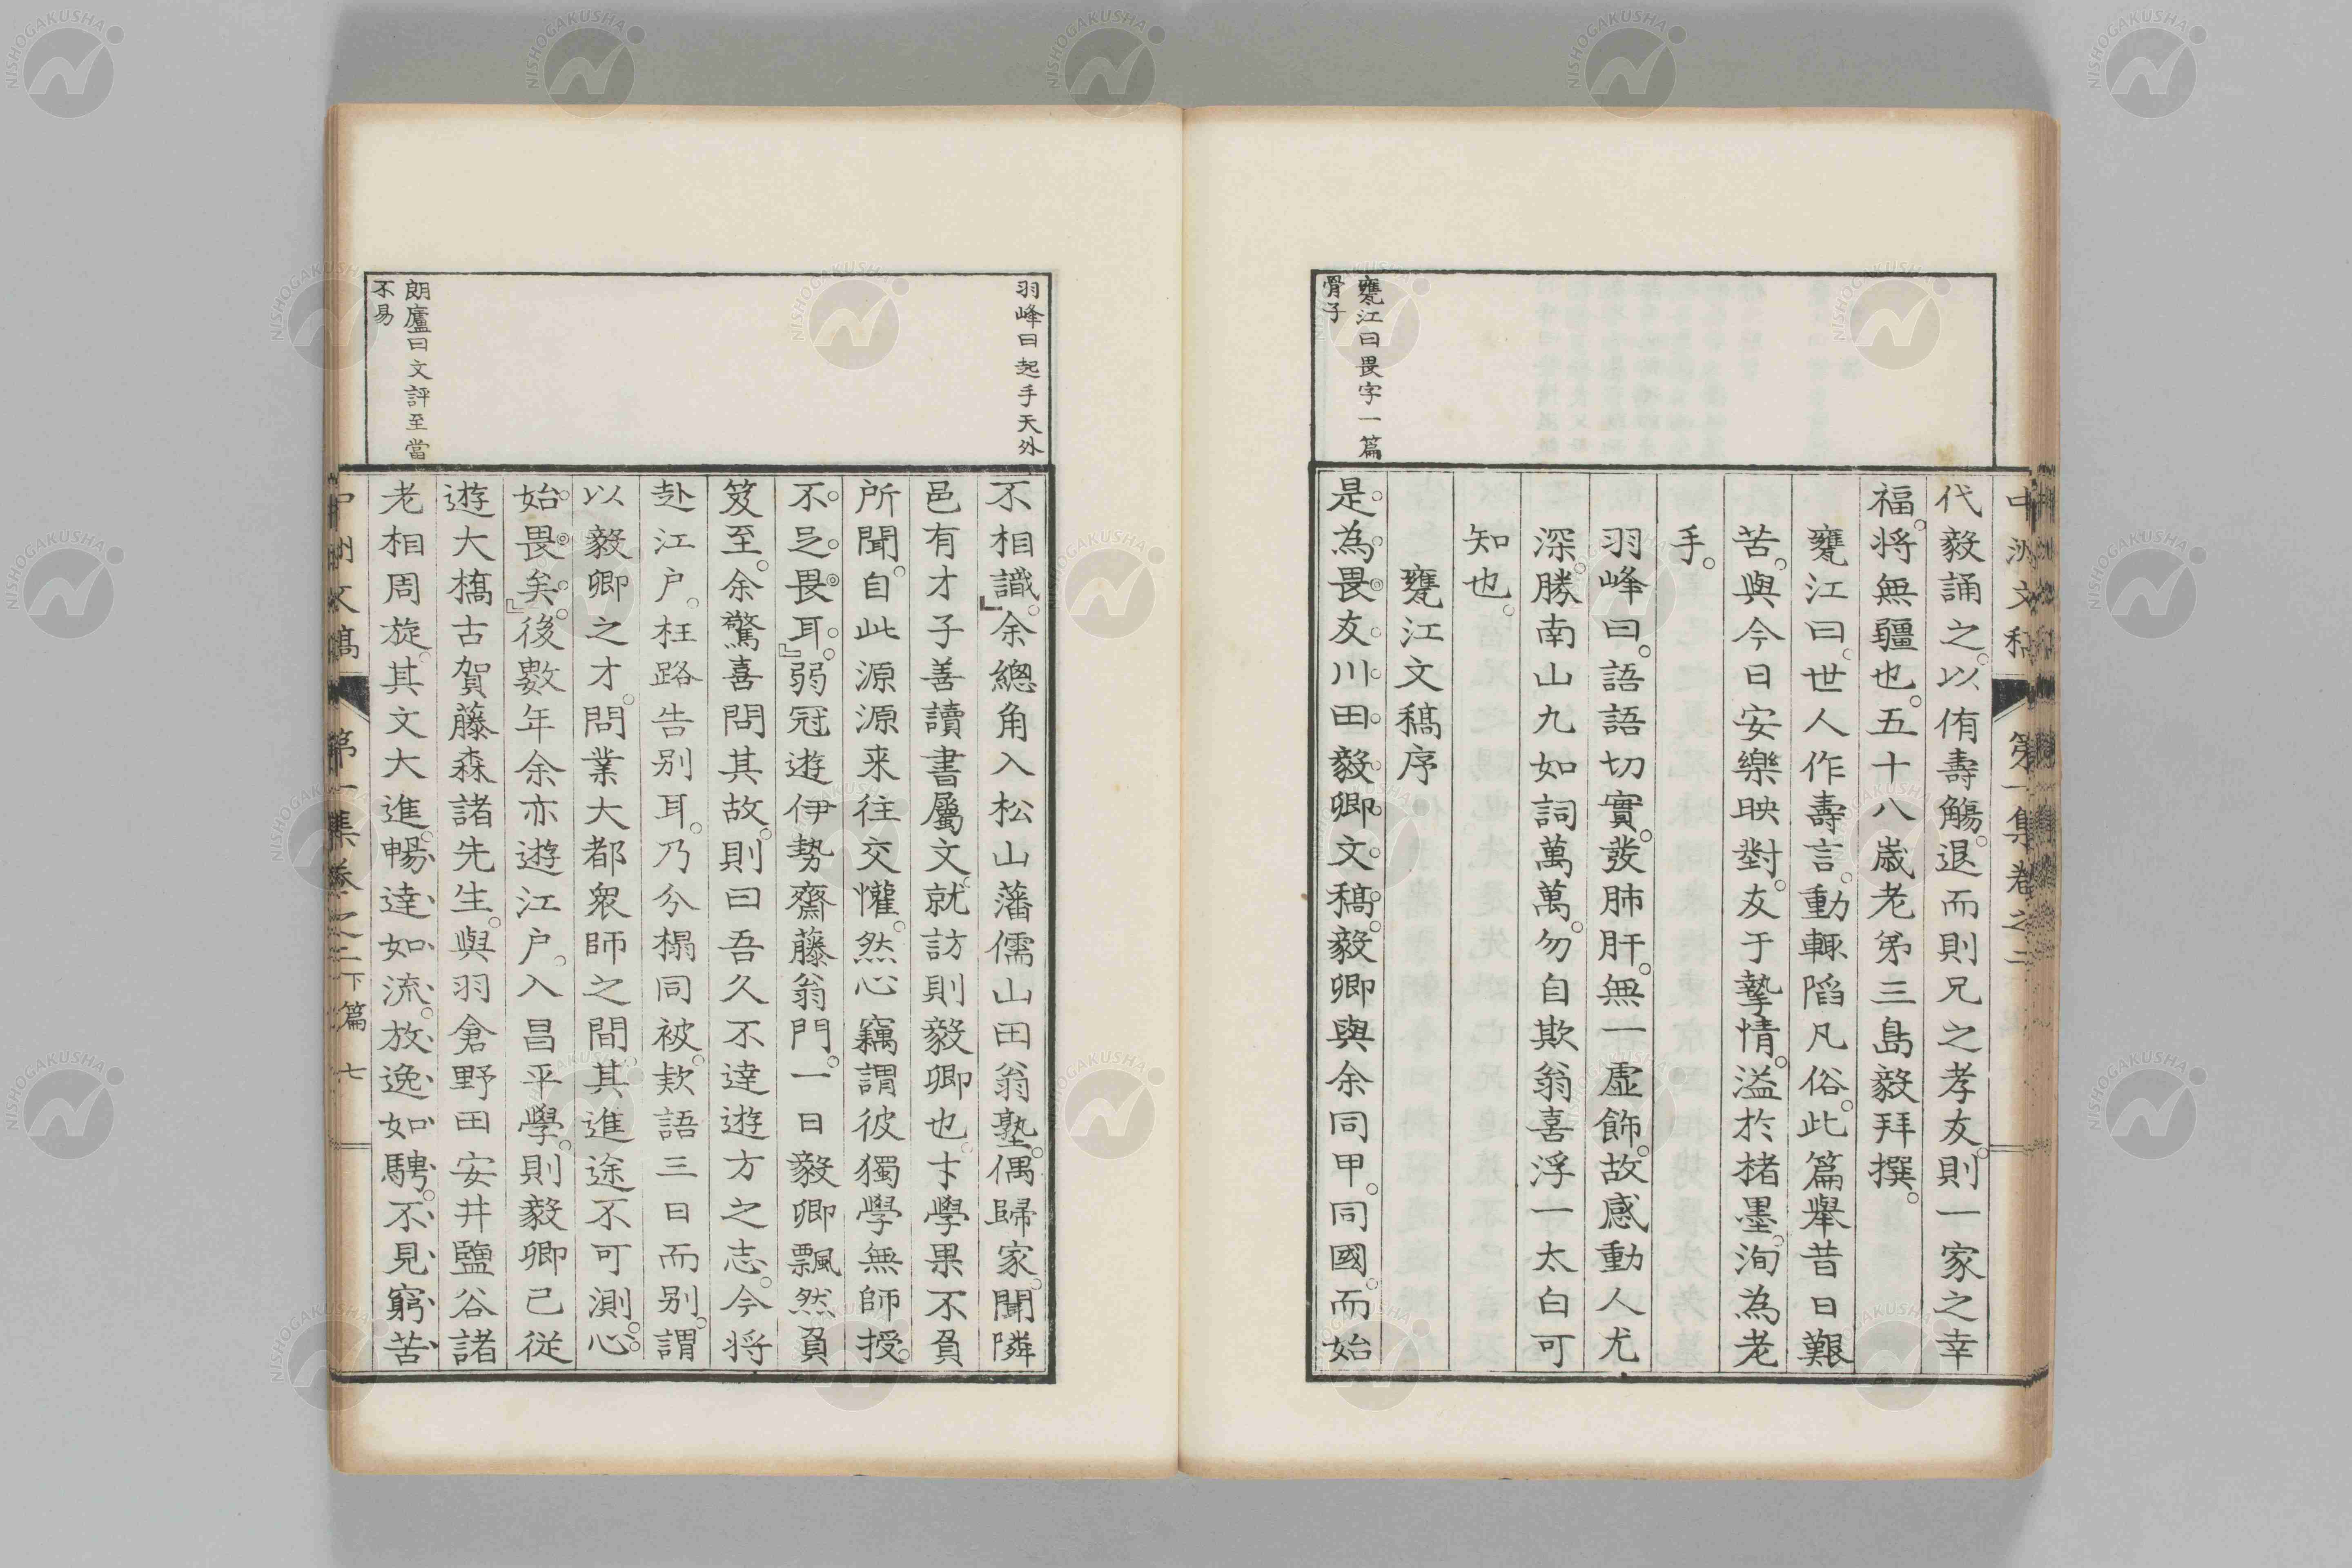 中洲文稿 第一集卷之二
代毅誦之。以侑壽觴。退而則兄之孝友。則一家之幸
福。将無疆也。五十八歳老弟三島毅拜撰。
甕江曰。世人作壽言。動輙䧟凡俗。此篇舉昔日艱
苦。與今日安樂映對。友于摯情。溢於楮墨。洵為老
手。
羽峰曰。語語切實。發肺肝。無一虛飾。故感動人尤
深。勝南山九如詞萬萬。勿自欺翁喜浮一太白可
知也。
甕江文稿序
甕江曰畏字一篇
骨子
是為畏友川田毅卿文稿。毅卿與余同甲。同國。而始
羽峰曰起手天外
不相識。』余總角入松山藩儒山田翁塾。偶歸家。聞隣
邑有才子善讀書屬文。就訪則毅卿也。才學果不負
所聞。自此源源来往交懽。然心竊謂彼獨學無師授。
不足畏耳。』弱冠遊伊勢齋藤翁門。一日毅卿飄然負
笈至。余驚喜問其故。則曰吾久不達遊方之志。今将
赴江户。枉路告别耳。乃分榻同被。欵語三日而别。謂
以毅卿之才。問業大都衆師之間。其進途不可測。心
始畏矣。』後數年余亦遊江户。入昌平學。則毅卿已従
遊大橋古賀藤森諸先生。與羽倉野田安井鹽谷諸
朗廬曰文評至當
不易
老相周旋。其文大進。暢達如流。放逸如騁。不見窮苦
中洲文稿 第一集卷之二下篇 七